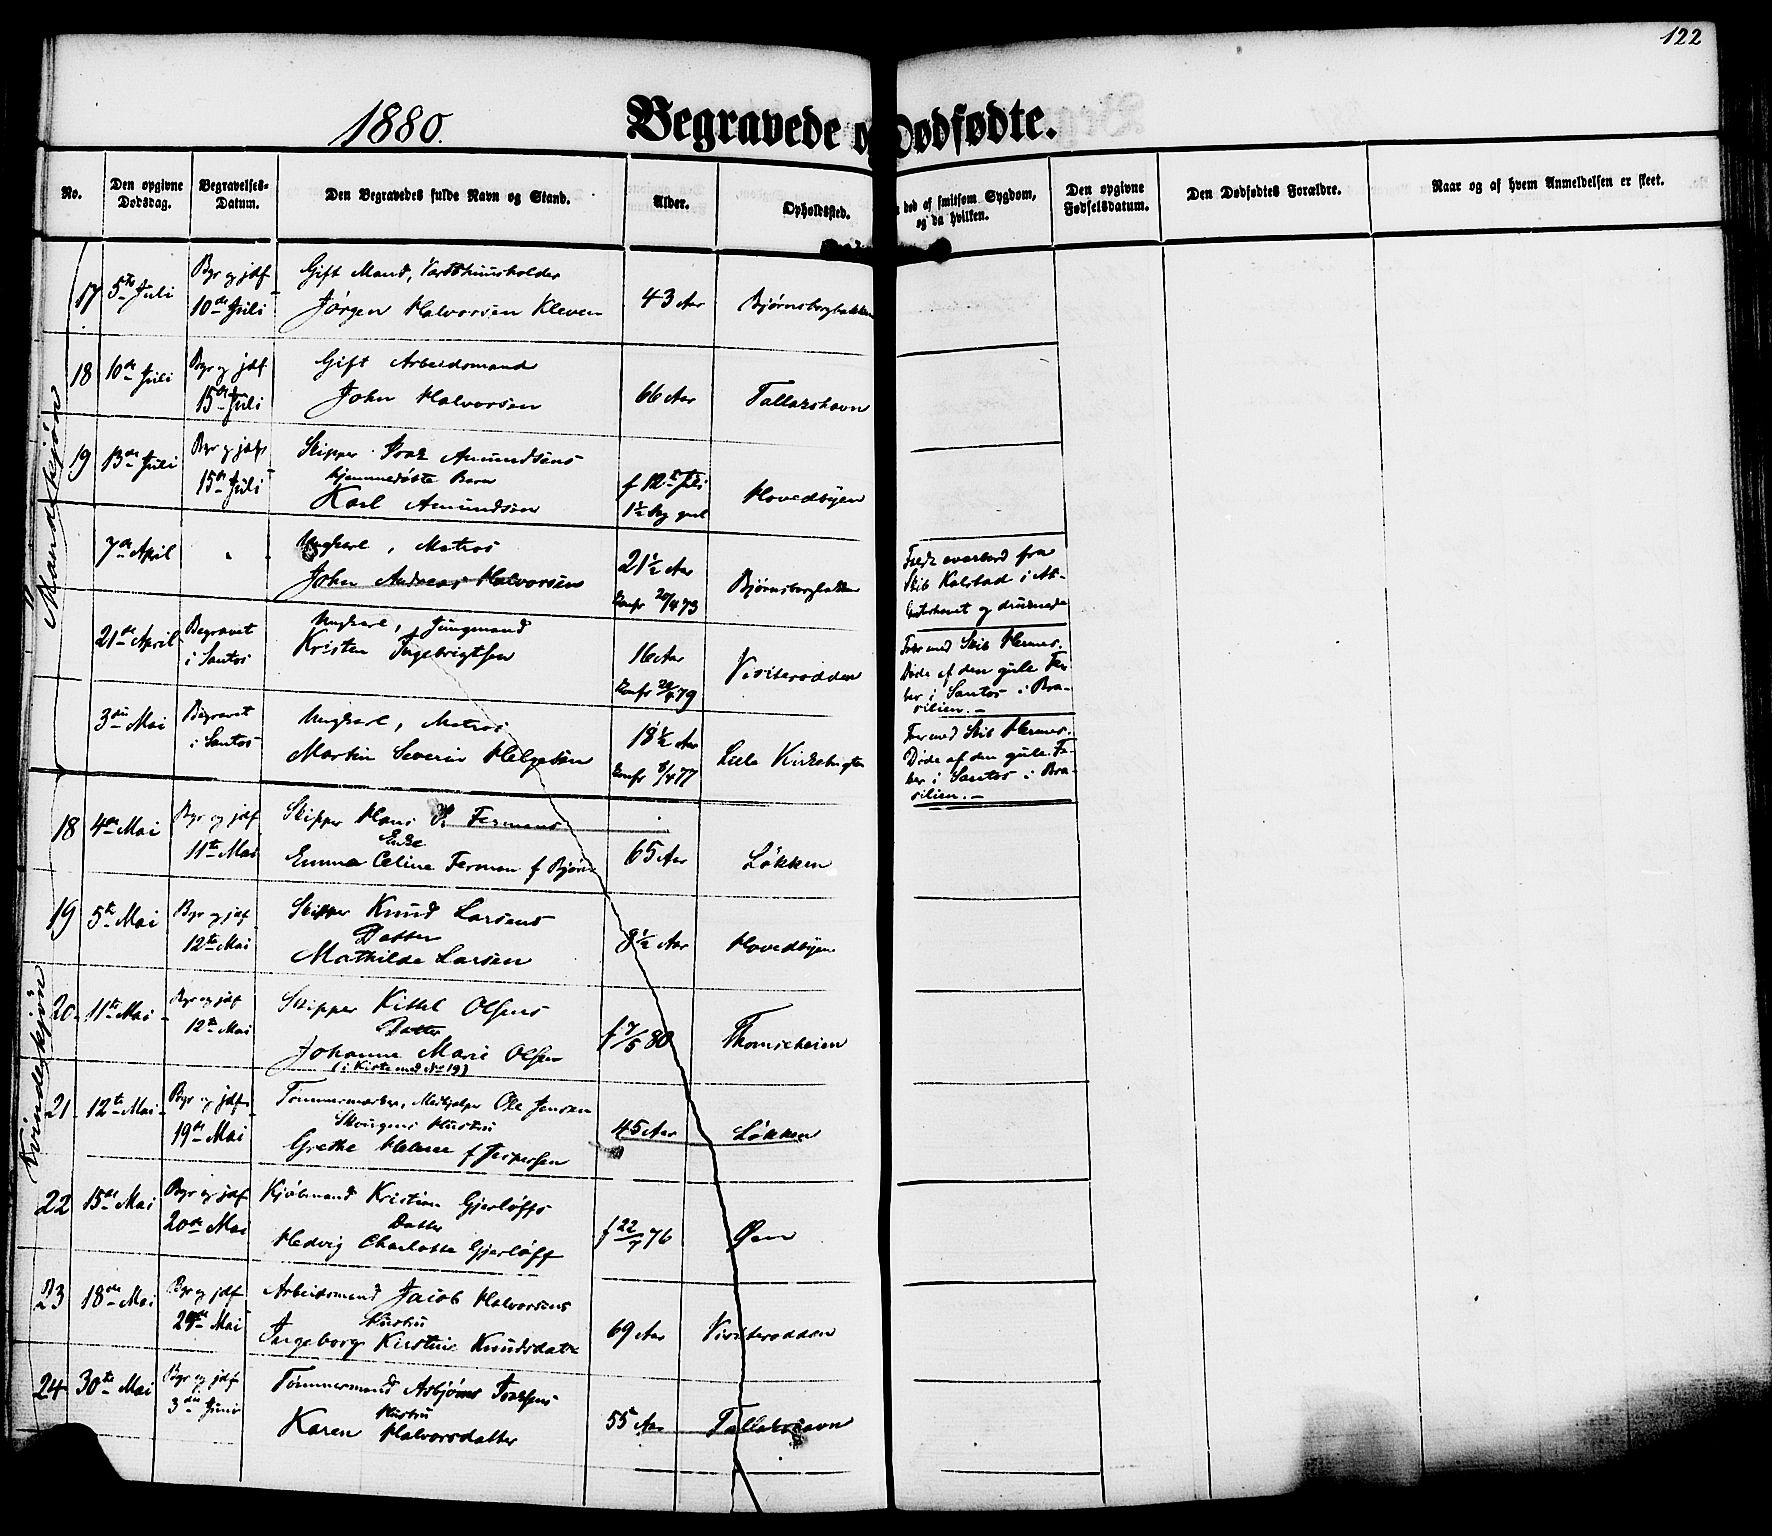 122
1880.
Begravede o Dødfødte.
No.
Den opgivne Dødsdag.
Begravelses-Datum.
Den Begravedes fulde Navn og Stand.
Alder.
Opholdssted.
død af smitsom Sygdom, og da hvilken.
Den opgivne Fødselsdatum.
Den Dødfødtes Forældre.
Naar og af hvem Anmeldelsen er skeet.
Mandskjøn
17 5te Juli Bgr og jdf 10de Juli
Gift Mand,
Jørgen Halvorsen Kleven 43 Aar Bjørnsborgbakken
18 10de Juli Bgr og jdf 15de Juli
Gift Arbeidsmand
John Halvorsen 66 Aar Tallakshavn
19 13de Juli Bgr og jdf 15de Juli
Skipper Amundsens
hjemmedøbte Barn
Karl Amundsen f 12te Juli Hovedbyen
7de April
Ungkarl, Matros
John Andreas Halvorsen 21½ Aar Konfr 20/4 73 Bjørnsborgbakken
Faldt overbord fra
Skib Kalstad i At-
lanterhavet og druknede
21de April Begravet i Santos
Ungkarl, Jungmand
Kristen Ingebrigtsen 16 Aar Konfr 20/4 79 Visiterodden
Foer med Skib Hermes.
Døde af den gule Fe-
ber i Santos i Bra-
silien.-
3die Mai Begravet i Santos
Ungkarl, Matros
Martin Severin Helgesen 18½ Aar Konfr 8/4 77 Lille Kirkebugten
Foer med Skib Hermes.
Døde af den gule Fe-
ber i Santos i Bra-
silien.-
Kvindeskjøn
18 4de Mai Bgr og jdf 11te Mai
Skipper Hans P. Fermans
Enke
Emma Celine Ferman f Bjørn 65 Aar Løkken
19 5te Mai Bgr og jdf 12te Mai
Skipper Knud Larsens
Datter
Mathilde Larsen 8½ Aar Hovedbyen
20 11te Mai Bgr og jdf 12te Mai
Skipper Kittel Olsens
Datter
Johanne Marie Olsen f 7/5 80 Thomesheien
(i Kiste med No 19)
21 12te Mai Bgr og jdf 19de Mai
Tømmermærker, Medhjelper Ole Jensen
Hustru
Grethe Helene f Jespersen 45 Aar Løkken
22 15de Mai Bgr og jdf 20de Mai
Kjøbmand Kristian Gjerløffs
Datter
Hedvig Charlotte Gjerløff f 22/7 76 Øen
23 18de Mai Bgr og jdf 24de Mai
Arbeidsmand Jacob Halvorsens
Hustru
Ingeborg Kirstine Knudsdatr 69 Aar Visiterodden
24 30te Mai Bgr og jdf 3die Juni
Tømmermand Asbjørns
Hustru
Karen Halvorsdatter 55 Aar Tallakshavn